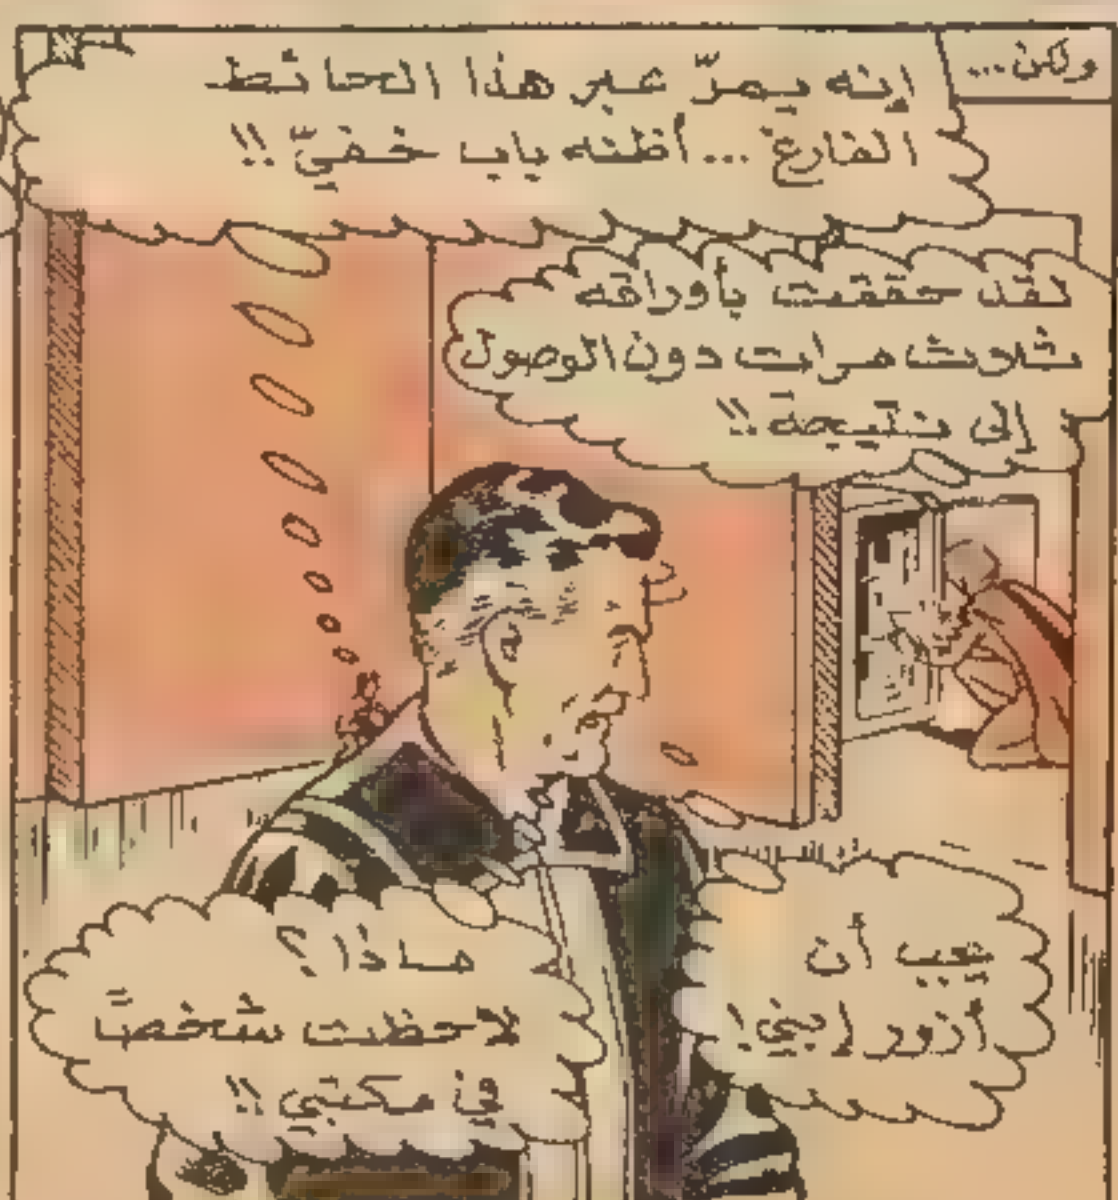 ولكن...
إنه يمرّ عبر هذا الحائط
الفارغ ... أظنه باب خفيّ !!
لقد حققت بأوراقه
ثلاث مرات دون الوصول
إلى نتيجة !!
يجب أن
أزور إبني!
ماذا ؟
لاحظت شخصًا
في مكتبي !!